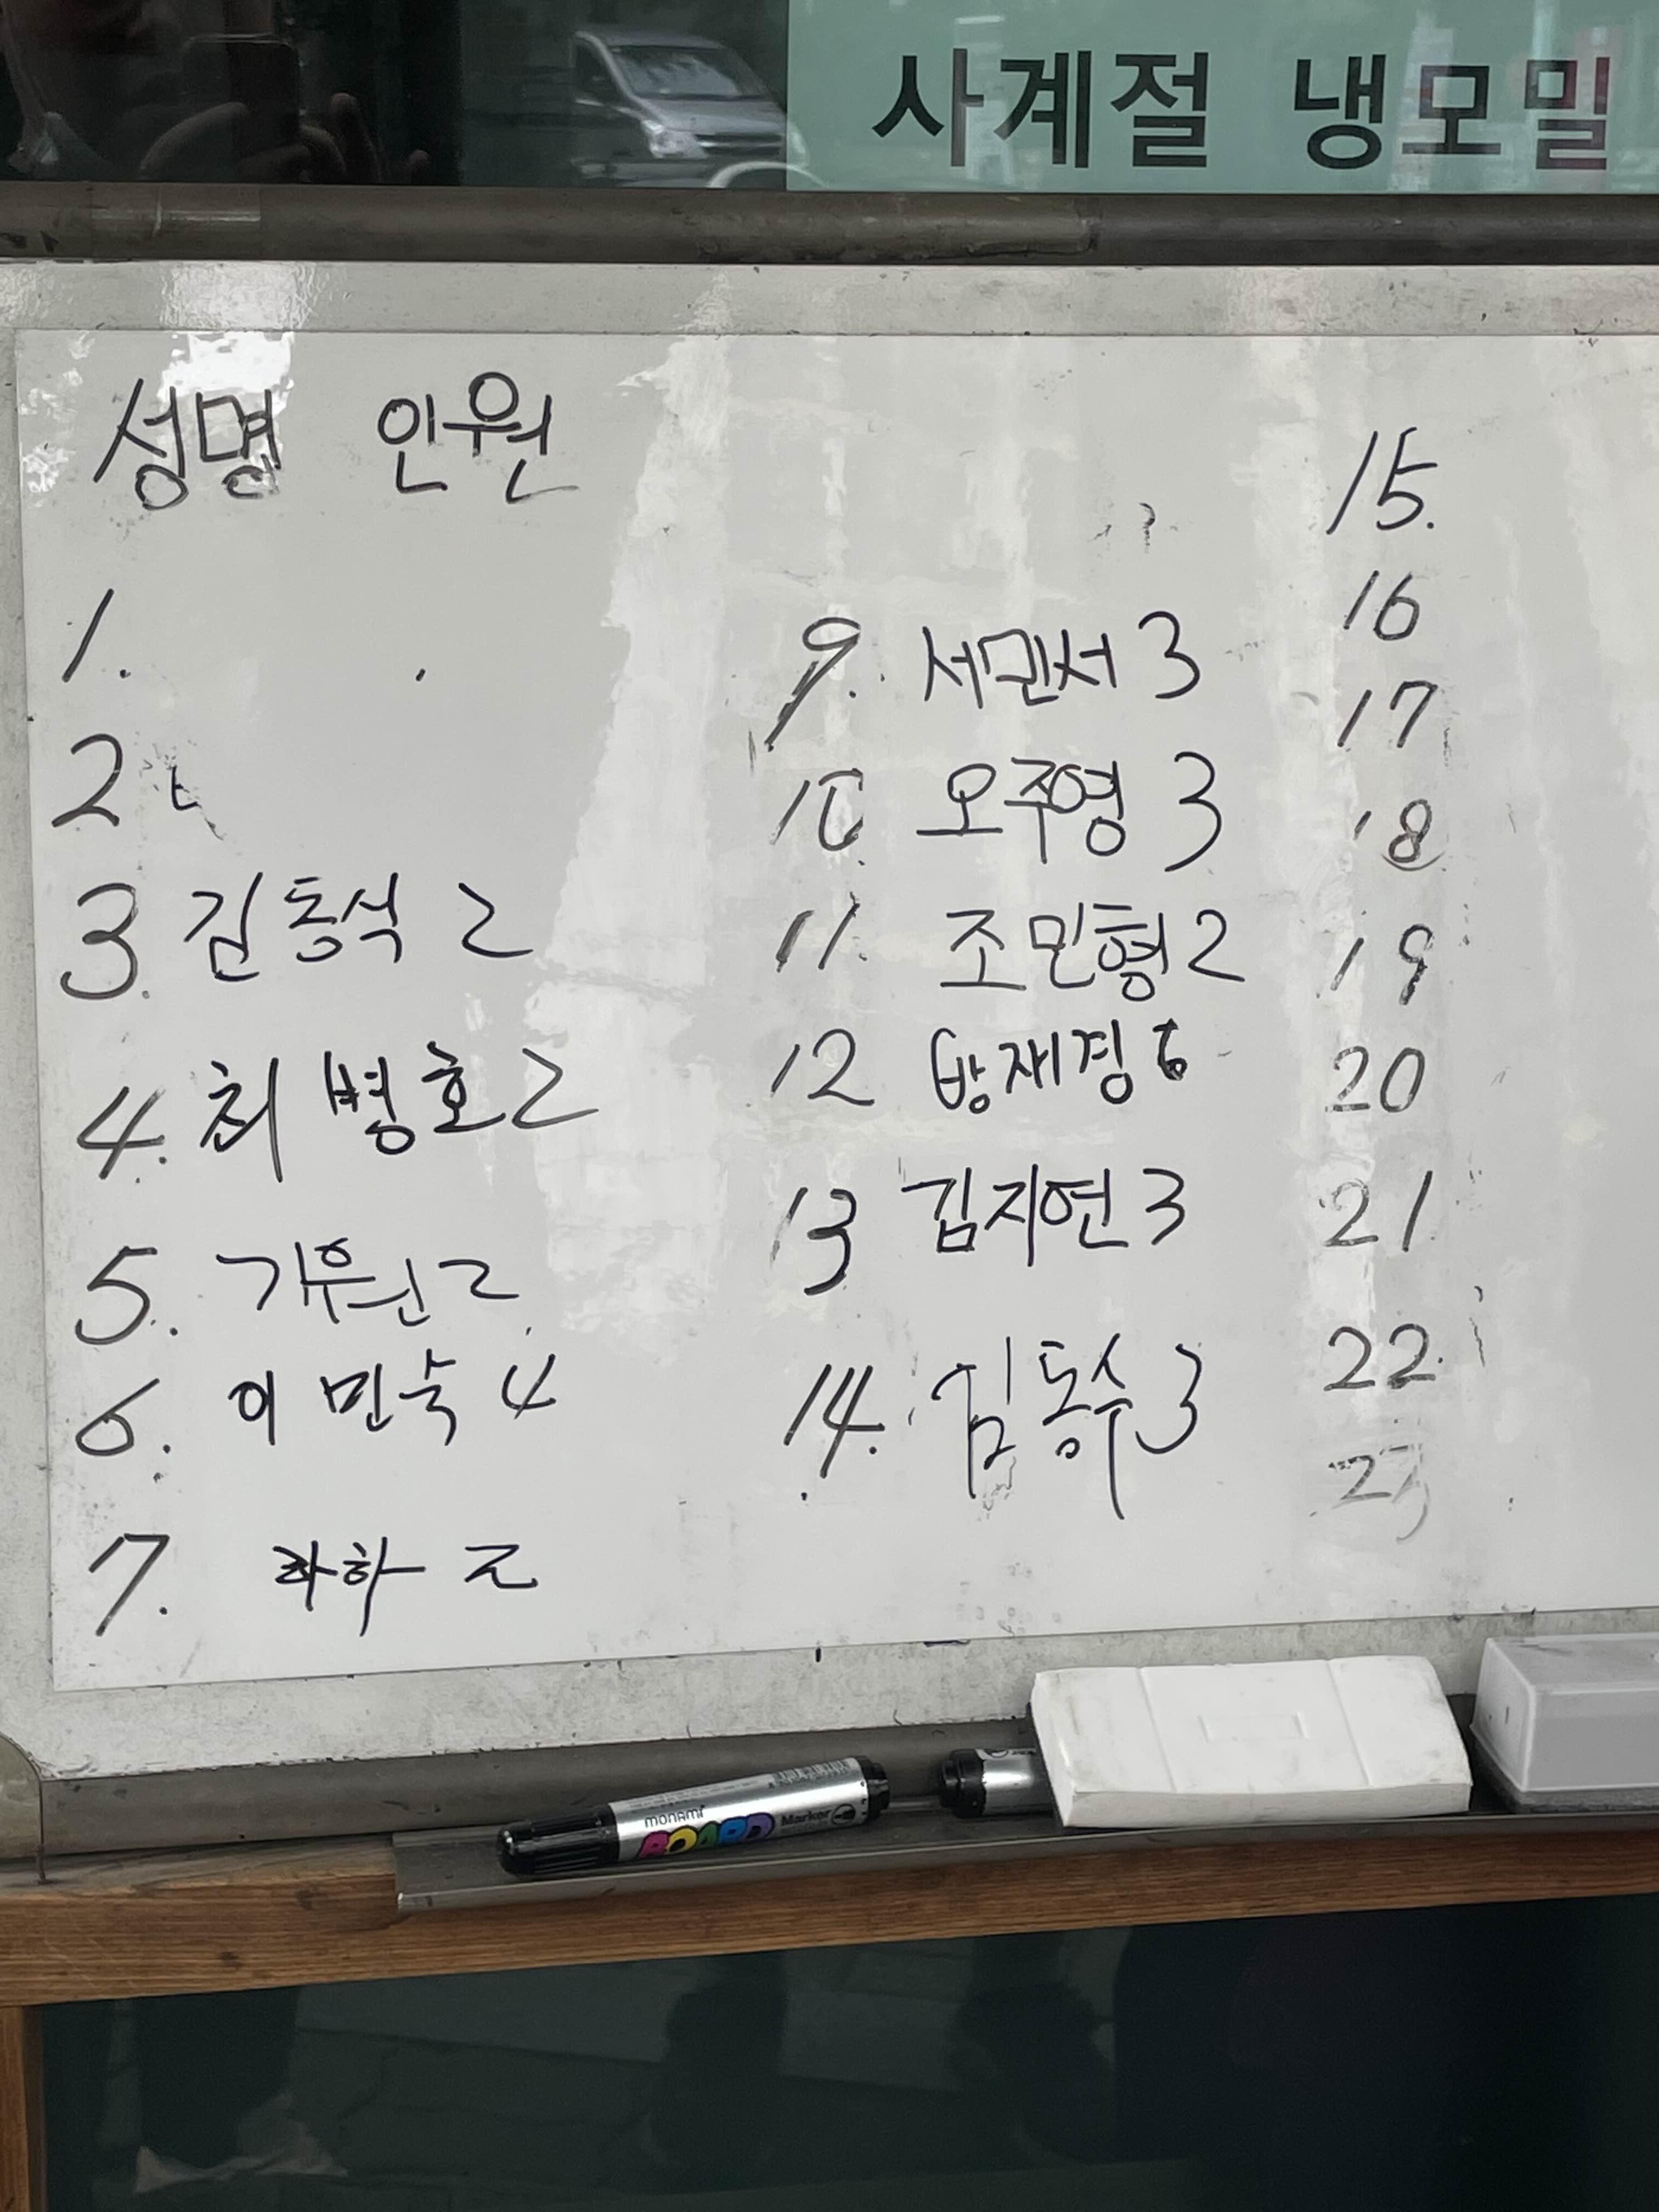 사계절 냉모밀
성명 인원
1.
2
3. 김동식 2
4. 최병호 2
5. 기우원 2
6. 이민숙 4
7. 하하 2
9. 서민서 3
10. 오주영 3
11. 조민형 2
12 방재경 6
13 김지연 3
14. 김동수 3
15.
16
17
18
19
20
21
22
23
monami
BOARD Marker